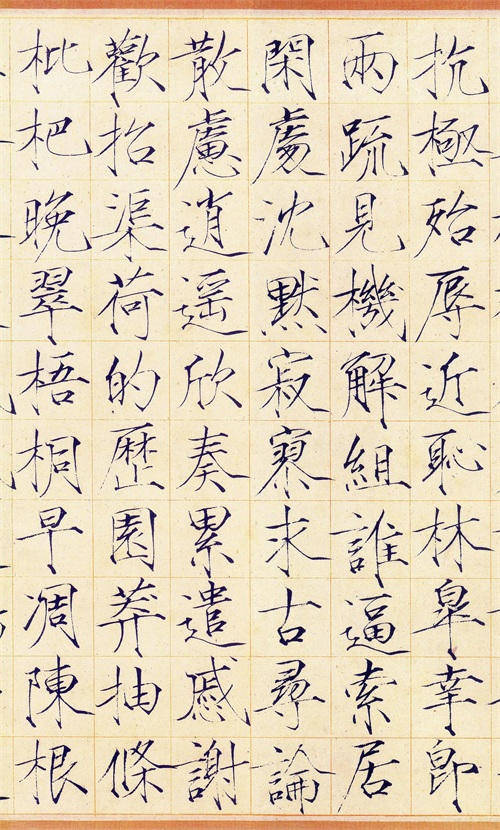 抗極殆辱近恥林皋幸即
兩疏見機解組誰逼索居
閑處沈默寂寥求古尋論
散慮逍遥欣奏累遣慼謝
歡招渠荷的歷園莽抽條
枇杷晚翠梧桐早凋陳根